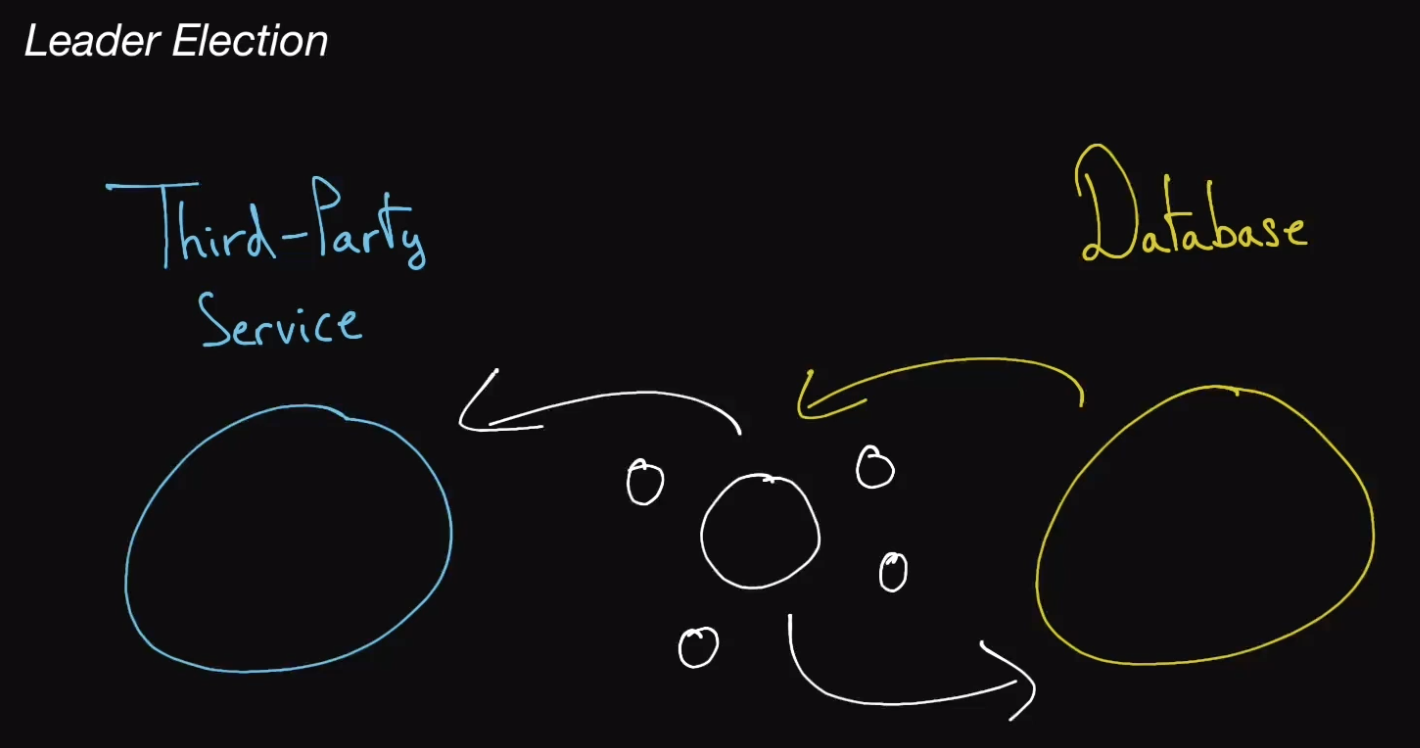 Leader Election
Third-Party
Service
Database